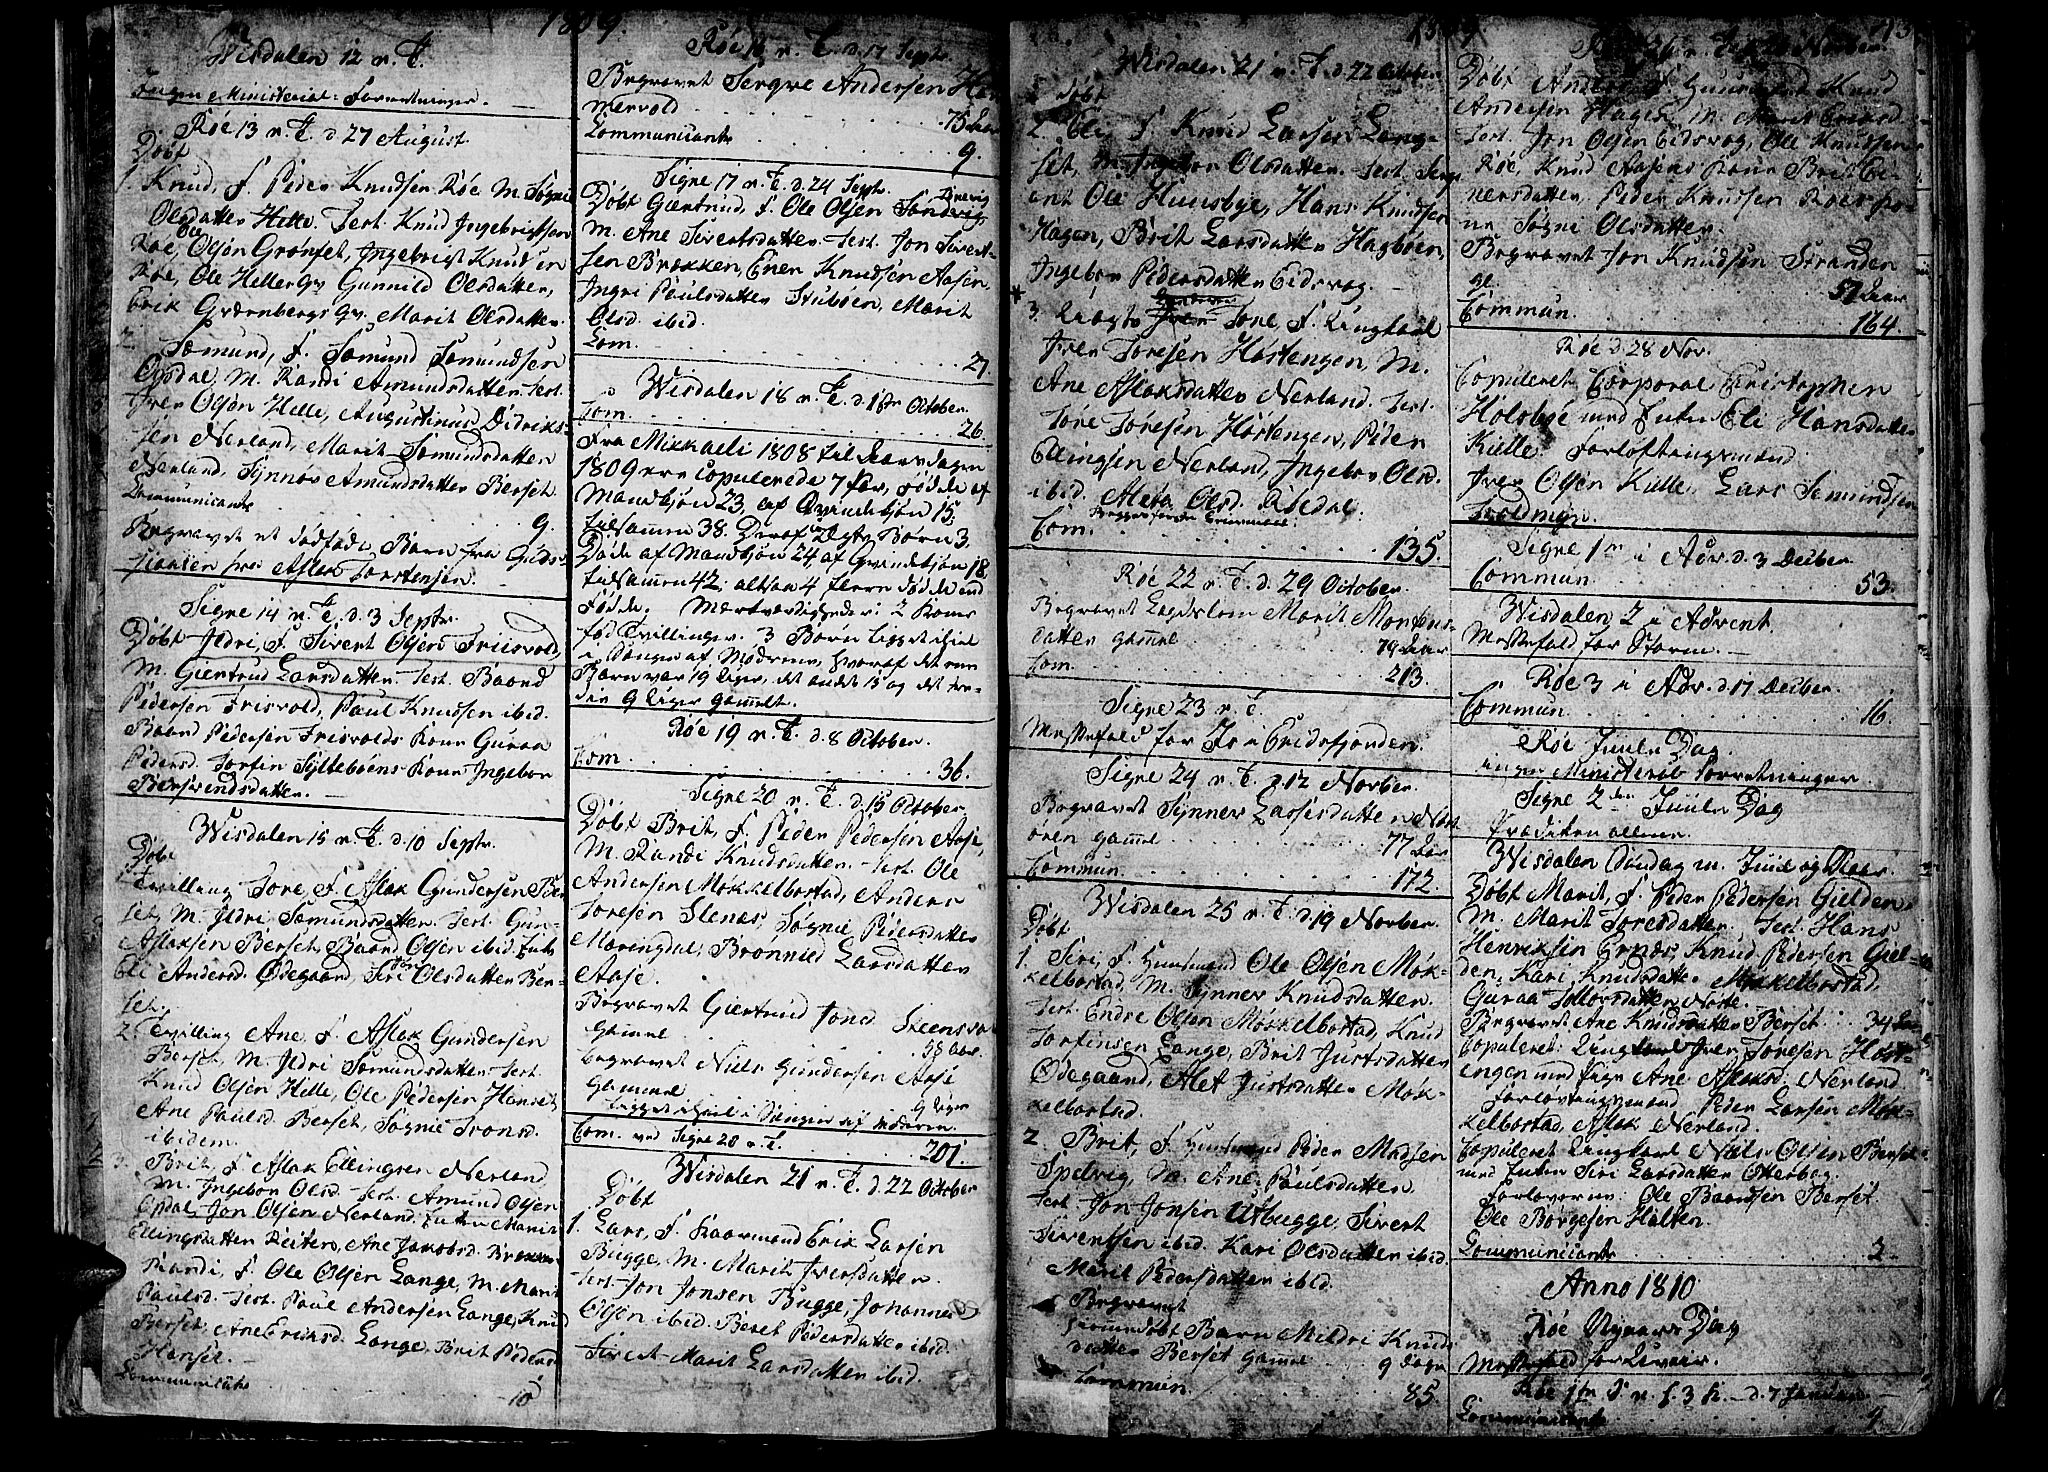 1809.
Wisdalen 12 n. T.
Ingen Ministerial-Forretninger.
Røe 13 n. T. d. 27 August.
Døbt
1. Knud, F. Peder Knudsen Røe M. Søgnie
Olsdatter Hille. Test. Knud Ingebrigtsen
Røe, Ole Olsen Grønset, Ingebrigt Knudsen
Røe, Ole Hilles Gv Gunnild Olsdatter,
Erik Gydenbergs Gv. Marit Olsdatter.
2. Somund, F. Somund Somundsen
Opdal, M. Randi Amundsdatter. Test.
Iver Olsen Hille, Augustinus Didrik-
sen Nerland, Marit Somundsdatter
Nerland, Synnøv Amundsdatter Berset.
Communicants 9.
Begravet et dødfødt Barn fra
for Aslak Torstensen.
Segne 14 n. T. d. 3 Septr.
Døbt Ildri, F. Sivert Olsen Friisvold,
M. Giertrud Larsdatter. Test. Baard
Pedersen Frisvold, Paul Knudsen ibid.
Baard Pedersen Frisvolds Kone Guraa
Pedersd. Torfin Syltebøens Kone Ingebor
Bersvendsdatter.
Wisdalen 15 n. T. d. 10 Septr.
Døbt
1. Tvilling Tore, F. Aslak Gundersen Ber-
set, M. Ildri Somundsdatter. Test. Gun-
Aslaksen Berset, Baard Olsen ibid.
Eli Andersd. Ødegaard, Siri Olsdatter Ber-
set.
2. Tvilling Ane F. Aslak Gundersen
Berset, M. Ildri Somundsdatter. Test.
Knud Olsen Hille, Ole Pedersen Hanset,
Ane Paulsd. Berset, Søgnie Tronsd.
ibidem.
3. Brit, F. Aslak Ellingsen Nerland
M. Ingebor Olsd. Test. Amund Olsen
Opdal, Jon Olsen Nerland. Marit
Ellingsdatter Reiten, Ane Jakobsd.
Randi, F. Ole Olsen Lange, M. Marit
Paulsd. Test. Paul Andersen Lange, Knud
Berset, Ane Eriksd. Lange, Brit Pedersd.
Hanset.
Communicants 10
Røe 16 n. T. d. 17 Septr.
Begravet Sergve Andersen Ha-
mervold 75 Aar
Communicants 9.
Segne 17 n. T. d. 24 Septr.
Døbt Giertrud, F. Ole Olsen Sandvig
M. Ane Sivertsdatter. Test. Jon Sivert-
sen Brekken, Ener Knudsen Aasen,
Ingri Paulsdatter Stubøen, Marit
Olsd. ibid.
Com. 21
Wisdalen 18 n. T. d. 1ste October.
Com. 26.
Fra Mikkaeli 1808 til denne dagen
1809 ere Copulerede 7 par, Fødde af
Mandkjøn 23, af Qvindekjøn 15,
tilsamen 38. Deraf uægte Børn 3.
Døde af Mandkjøn 24, af Qvindekjøn 18
tilsamen 42. altsaa 4 flere Døde end
Fødde. Mærkværdigheder: 2 Koner
fød Tvillinger. 3 Børn ligget ihiel
i Sengen af Mødrene, hvoraf det ene
Barn var 19 Uger, det andet 15 og det tre-
die 9 Uger gamelt.
Røe 19 n. T. d. 8 October.
Com. 36.
Segne 20 n. T. d. 15 October
Døbt Brit, F. Peder Pedersen Aase,
M. Randi Knudsdatter. Test. Ole
Andersen Møkkelbostad, Anders
Toresen Stenes, Søgnie Pedersdatter
Meringdal, Brønnied Larsdatter
Aase.
Begravet Giertrud Jonsd.
gamel 58 Aar.
Begravet Niels Gundersen Aase
Gamel 9 Uger
ligget ihiel i Sengen af Moderen.
Com. ved Segne 20 n. T. 201.
Wisdalen 21 n. T. d. 22 October
Døbt
1. Lars, F. Erik Larsen
Bugge, M. Marit Iversdatter.
Test. Jon Jonsen Bugge, Johannes
Olsen ibid. Beret Pedersdatter ibid.
Marit Larsdatter ibid.
1809
Wisdalen 21 n. T. d. 22 October
Døbt
2. Eli F. Knud Larsen Lang-
set, M. Ingebor Olsdatter. Test. Serge-
ant Ole Huusbye, Hans Knudsen
Hagen, Brit Larsdatter Hagbøen,
Ingebor Pedersdatter Eidsvog.
3. Uægte Tore, F. Ungkarl
Iver Toresen Hostengen, M.
Ane Aslaksdatter Nerland. Test.
Tore Toresen Hostengen, Peder
Ellingsen Nerland, Ingebor Olsd.
ibid. Aleta Olsd. Røsdal.
Com. 135.
Røe 22 n. T. d. 29 October.
Begravet Marit Mortens-
datter gamel 79 Aar
Com. 213.
Segne 23 n. T.
Messefald for Is i Eridsfjorden.
Segne 24 n. T. d. 12 Novber.
Begravet Synnev Lassesdatter
gamel 77 Aar
Commun. 172.
Wisdalen 25 n. T. d. 19 Novber.
Døbt
1. Siri, F. Huusmand Ole Olsen Møk-
kelbostad, M. Synnev Knudsdatter.
Test. Endre Olsen Møkkelbostad, Knud
Torfinsen Lange, Brit Justsdatter
Ødegaard, Alet Justsdatter Møk-
kelbostad.
2. Brit, F. Huusmand Peder Madsen
Spelvig, M. Ane Paulsdatter.
Test. Jon Jonsen Utbugge, Sivert
Sivertsen ibid. Kari Olsdatter ibid.
Marit Pedersdatter ibid.
Begravet
hjemmedøbt Barn Mildri Knuds-
datter Berset gamel 9 Dage
Commun. 85.
Røe 26 n. T. d. 26 Novber.
Døbt Anders, F. Huusmand Knud
Andersen Hagen, M. Marit Eriksd.
Test. Jon Olsen Eidsvog, Ole Knudsen
Røe, Knud Aasens Kone Brit Ei-
nersdatter, Peder Knudsen Røes Ko-
ne Søgne Olsdatter.
Begravet Jon Knudsen Stranden
gl. 57 Aar
Commun. 164
Røe d. 28 Nov.
Copuleret Corporal Christopher
Holsbøe med Enken Eli Hansdatter
Kulle. Forloftningsmænd:
Iver Olsen Kulle, Lars Somundsen
Toldmyr.
Segne 1ste i Adv. d. 3 Decber.
Commun. 53.
Wisdalen 2 i Advent.
Messefald for Storm.
Røe 3 i Adv. d. 17 Decber.
Commun. 16.
Røe Juule Dag.
ingen Ministerial Forretninger.
Segne 2den Juule Dag
Prædiken allene.
Wisdalen Søndag m. Juul og Nyaar.
Døbt Marit, F. Peder Pedersen Gielden,
M. Marit Toresdatter, Test. Hans
Henriksen Ernes, Knud Pedersen Giel-
den, Kari Knudsdatter Møkkelbostad,
Guraa Tollevsdatter Norde.
Begravet Ane Knudsdatter Berset 34 Aar
Copuleret: Ungkarl Iver Toresen Host-
engen med Pige Ane Aslaksd. Nerland
Forlovtningsmænd Peder Larsen Møk-
kelbostad, Aslak Nerland.
Copuleret Ungkarl Niels Olsen Berset
med Enken Siri Larsdatter Otterbeg.
Forlovere: Ole Baardsen Berset.
Ole Børgesen Holten.
Communicants 2.
Anno 1810
Røe Nyaars Dag
Messefald for Uveir.
Røe 1ste S. e. h. 3 K. d. 7 Januar
Communicants 9